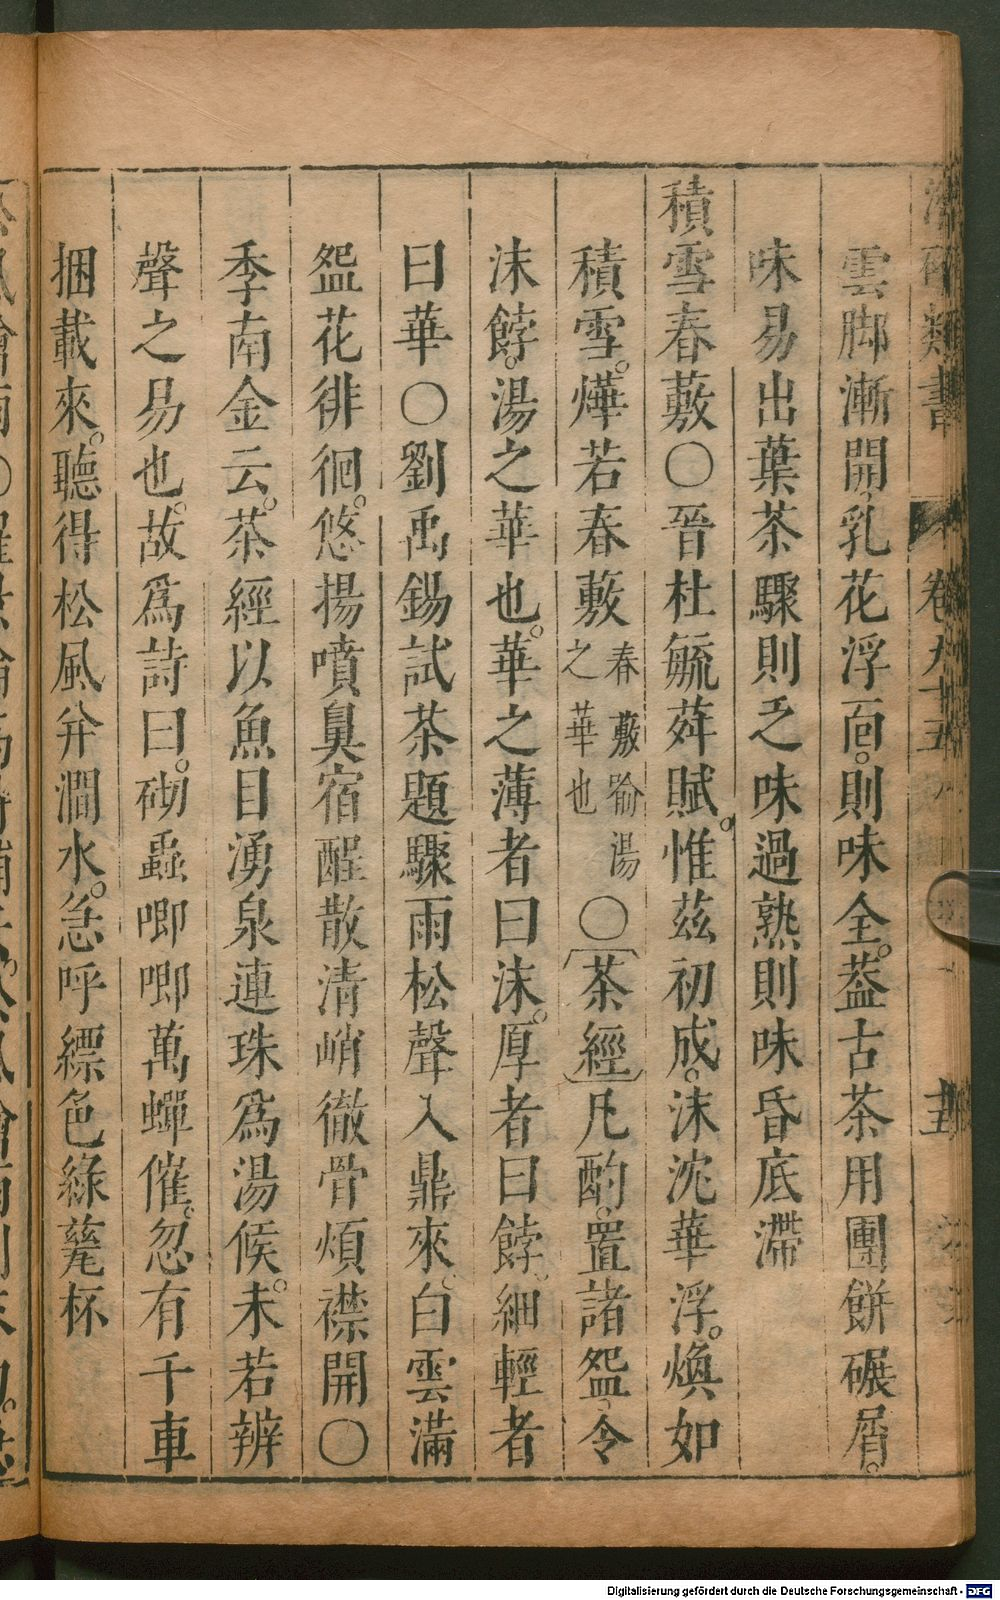 雲脚漸開乳花浮面。則味全。葢古茶用團餅碾屑。
味易出葉茶驟則乏味過熟則味昏底滯
積雪春藪〇晉杜毓荈賦。惟茲初成。沫沈華浮。煥如
積雪。燁若春藪春藪喻湯之華也〇茶經凡酌。置諸盌令
沫餑。湯之華也。華之薄者曰沫。厚者曰餑。細輕者
曰華〇劉禹錫試茶題驟雨松聲入鼎來。白雲滿
盌花徘徊。悠揚噴𠾱宿醒散清峭徹骨煩襟開〇
季南金云。茶經以魚目湧泉連珠爲湯候。未若辨
聲之易也。故爲詩曰。砌蟲唧唧萬蟬催。忽有千車
捆載來。聽得松風幷澗水。急呼縹色綠甆杯
類書
卷九十五
Digitalisierung gefördert durch die Deutsche Forschungsgemeinschaft - DFG